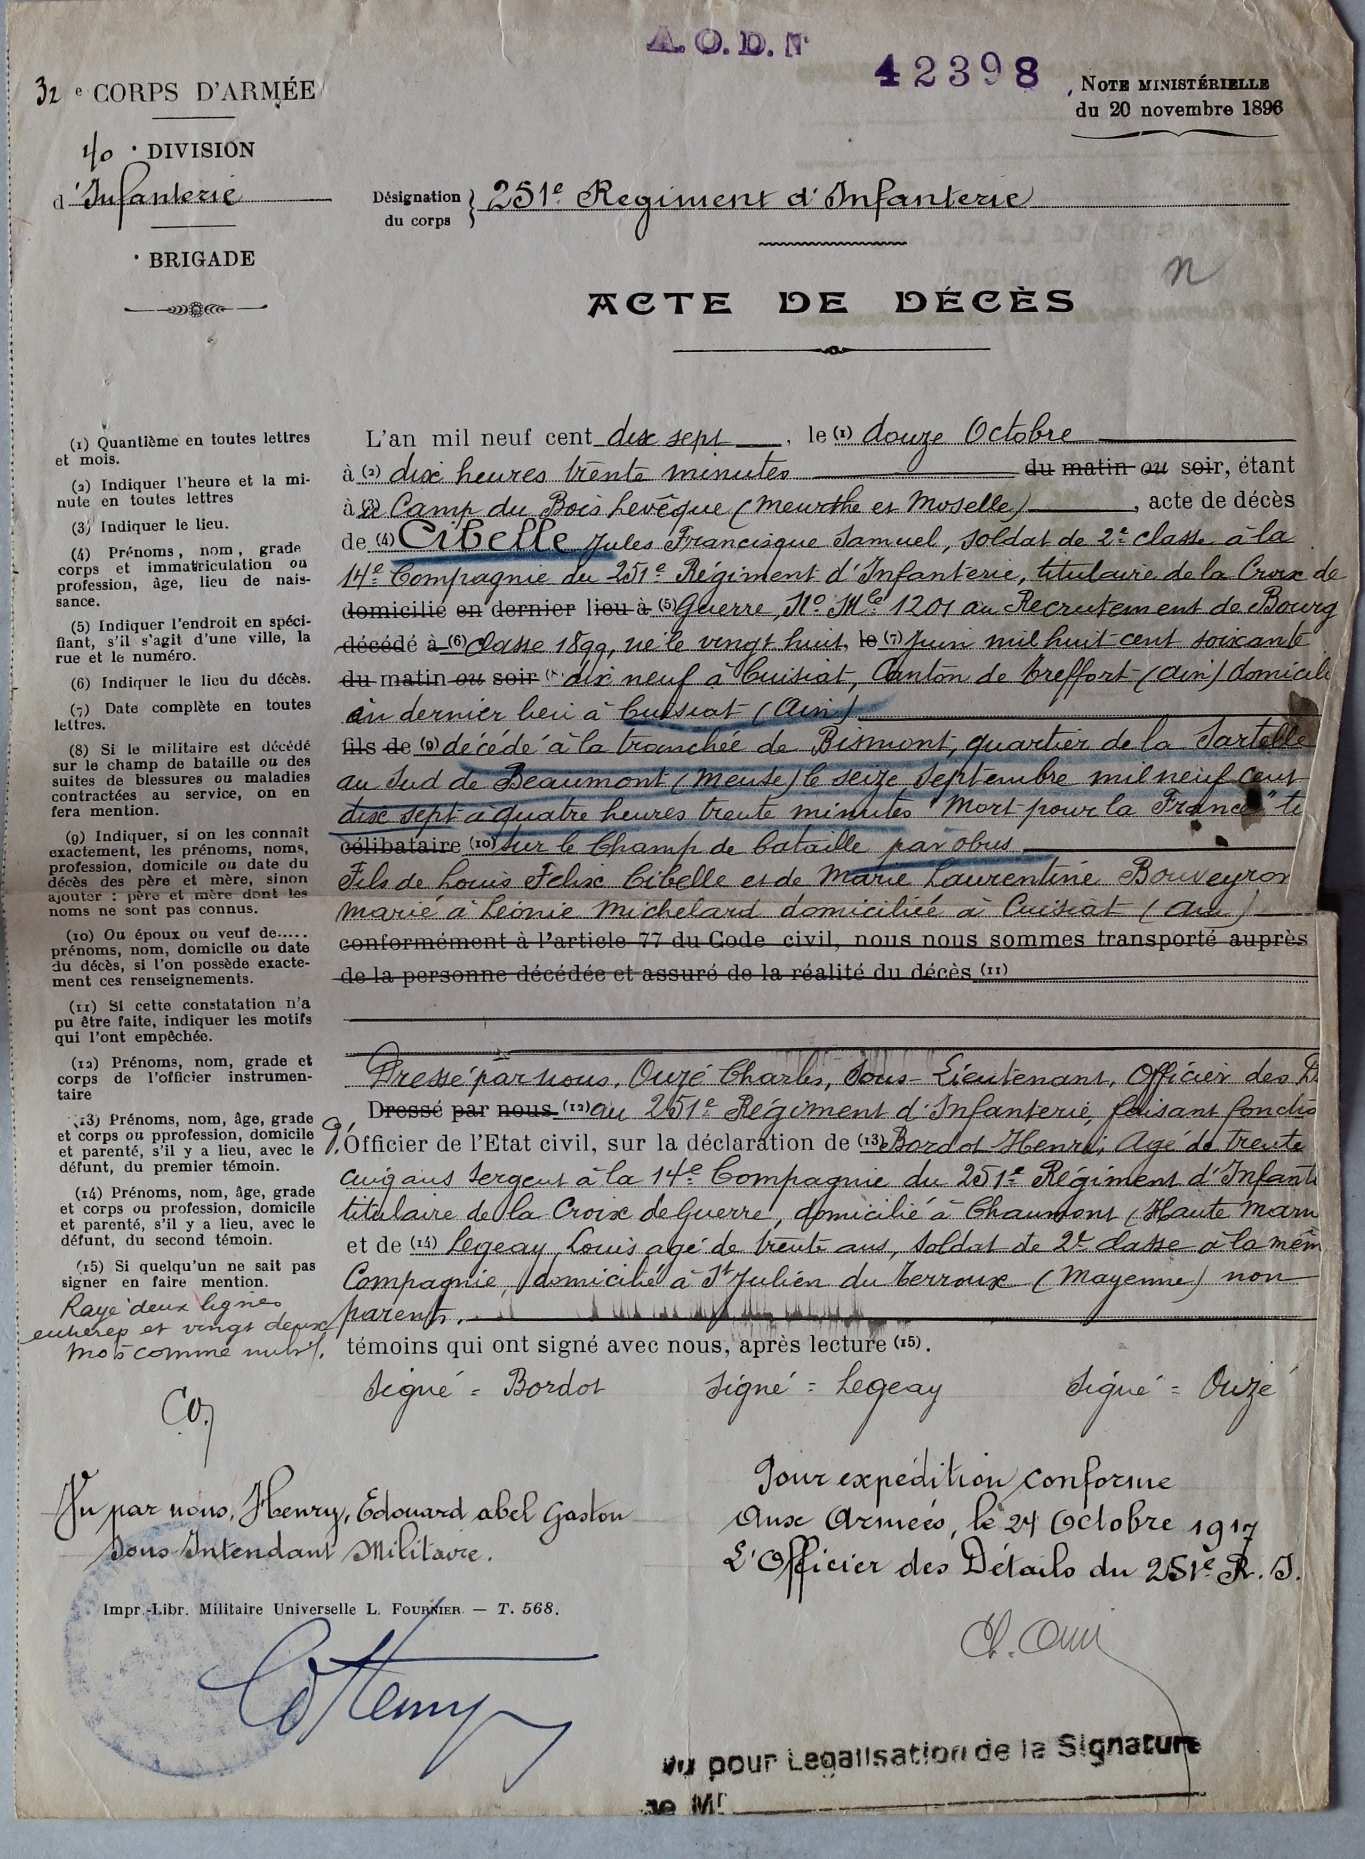 A.O.D. N°
42398
32 e CORPS D'ARMÉE
NOTE MINISTÉRIELLE
du 20 novembre 1896
40 e DIVISION
d'Infanterie
Désignation
du corps
251e Regiment d'Infanterie
e BRIGADE
n
ACTE DE DÉCÈS
(1) Quantième en toutes lettres
et mois.
(2) Indiquer l'heure et la mi-
nute en toutes lettres
(3) Indiquer le lieu.
(4) Prénoms, nom, grade
corps et immatriculation ou
profession, âge, lieu de nais-
sance.
(5) Indiquer l'endroit en spéci-
fiant, s'il s'agit d'une ville, la
rue et le numéro.
(6) Indiquer le lieu du décès.
(7) Date complète en toutes
lettres.
(8) Si le militaire est décédé
sur le champ de bataille ou des
suites de blessures ou maladies
contractées au service, on en
fera mention.
(9) Indiquer, si on les connaît
exactement, les prénoms, noms,
profession, domicile ou date du
décès des père et mère, sinon
ajouter : père et mère dont les
noms ne sont pas connus.
(10) Ou époux ou veuf de.....
prénoms, nom, domicile ou date
du décès, si l'on possède exacte-
ment ces renseignements.
(11) Si cette constatation n'a
pu être faite, indiquer les motifs
qui l'ont empêchée.
(12) Prénoms, nom, grade et
corps de l'officier instrumen-
taire
(13) Prénoms, nom, âge, grade
et corps ou pprofession, domicile
et parenté, s'il y a lieu, avec le
défunt, du premier témoin.
(14) Prénoms, nom, âge, grade
et corps ou profession, domicile
et parenté, s'il y a lieu, avec le
défunt, du second témoin.
(15) Si quelqu'un ne sait pas
signer en faire mention.
Rayé deux lignes
entières et vingt deux
mots comme nuls.
L'an mil neuf cent dix sept, le (1) douze Octobre
à (2) dix heures trente minutes du matin ou soir, étant
à (3) Camp du Bois Levêque (Meurthe et Moselle), acte de décès
de (4) Cibelle Jules Francisque Samuel, soldat de 2e classe à la
14e Compagnie du 251e Régiment d'Infanterie, titulaire de la Croix de
domicilié en dernier lieu à (5) Guerre, No Mle 1201 au Recrutement de Bourg
décédé à (6) Classe 1899, né le vingt huit, le (7) Juin mil huit cent soixante
du matin ou soir (8) dix neuf à Cuisiat, Canton de Treffort (Ain) domicilié
en dernier lieu à Cuisiat (Ain)
fils de (9) décédé à la tranchée de Bismont, quartier de la Sartelle
au Sud de Beaumont (Meuse) le seize Septembre mil neuf cent
dix sept à quatre heures trente minutes "Mort pour la France" tué
célibataire (10) sur le Champ de bataille par obus
Fils de Louis Felix Cibelle et de Marie Laurentine Bouveyron
marié à Léonie Michelard domiciliée à Cuisiat (Ain)
conformément à l'article 77 du Code civil, nous nous sommes transporté auprès
de la personne décédée et assuré de la réalité du décès (11)
Dressé par nous, Ouzé Charles, Sous-Lieutenant, Officier des D
Dressé par nous (12) au 251e Régiment d'Infanterie, faisant fonctio
d'Officier de l'Etat civil, sur la déclaration de (13) Bordot Henri, Agé de trente
cinq ans Sergent à la 14e Compagnie du 251e Régiment d'Infant
titulaire de la Croix de Guerre, domicilié à Chaumont (Haute Marn
et de (14) Legeay Louis agé de trente ans, Soldat de 2e classe à la mêm
Compagnie, domicilié à St Julien du Terroux (Mayenne) non
parents.
témoins qui ont signé avec nous, après lecture (15).
Signé = Bordot Signé = Legeay Signé = Ouzé
Vu par nous, Henry, Edouard abel Gaston
Sous Intendant Militaire.
Pour expédition conforme
Aux Armées, le 24 Octobre 1917
L'Officier des Détails du 251e R. I.
Impr.-Libr. Militaire Universelle L. FOURNIER. — T. 568.
Vu pour Legalisation de la Signature
de Mr